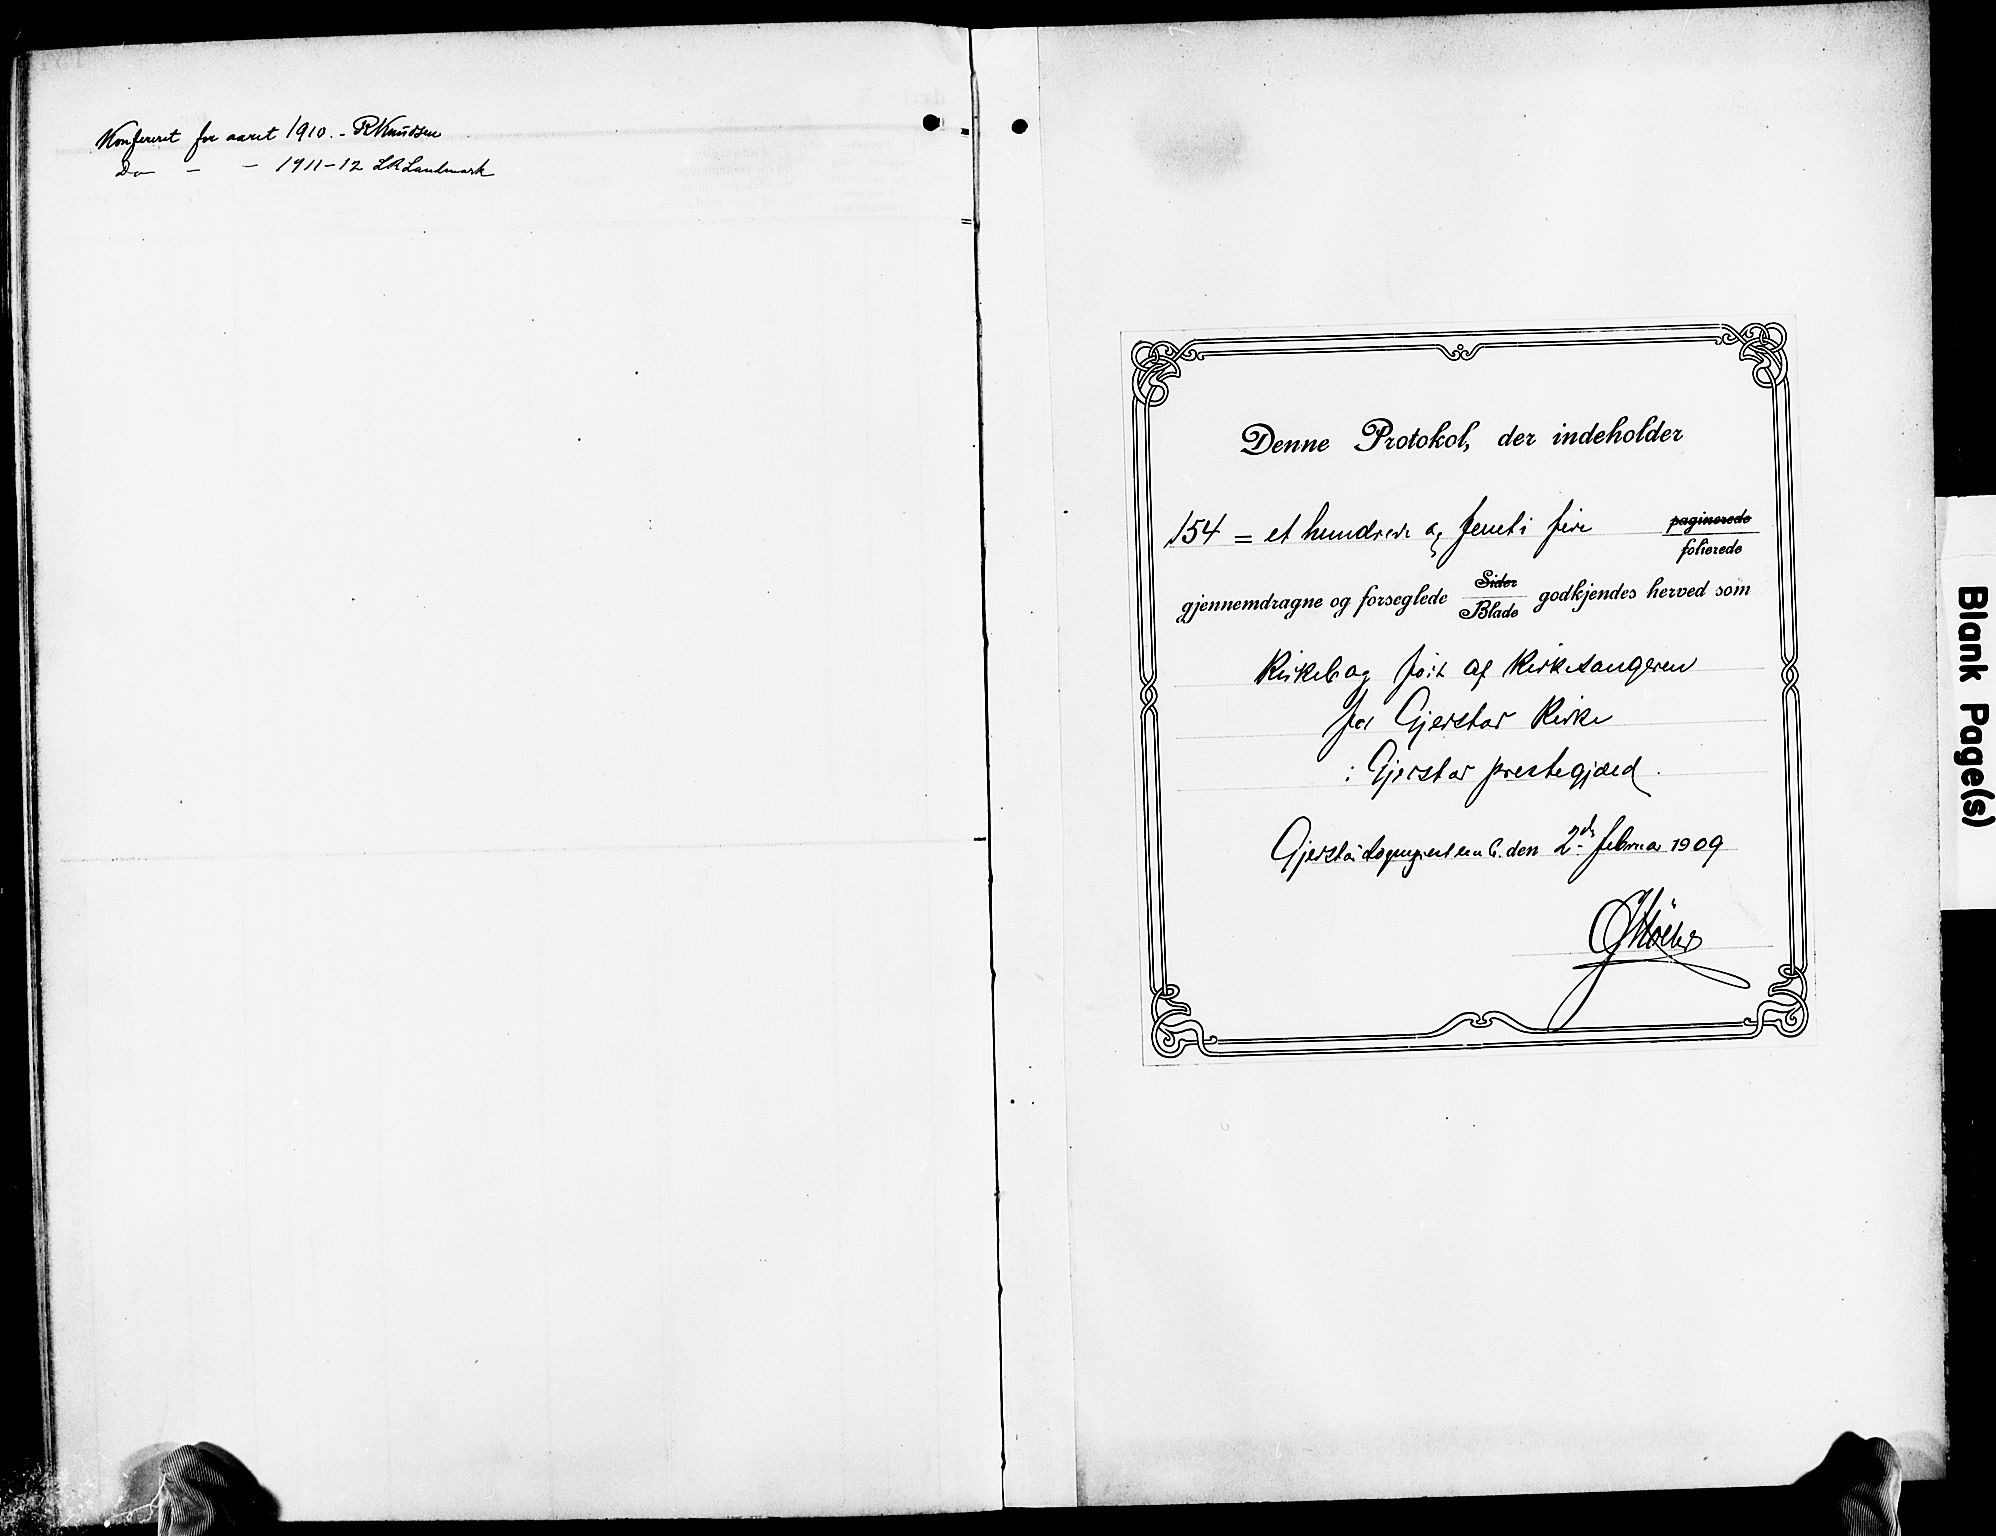 Konfereret for aaret 1910. - R Knudsen
Do - - 1911-12 LR Landmark
Denne Protokol, der indeholder
154 = et hundrede og femti fire paginerede
folierede
gjennemdragne og forseglede Sider godkjendes herved som
Blade
Kirkebog ført af Kirkesangeren
for Gjerstad Kirke
i Gjerstad prestegjæld.
den 2de februar 1909
Blank Page(s)